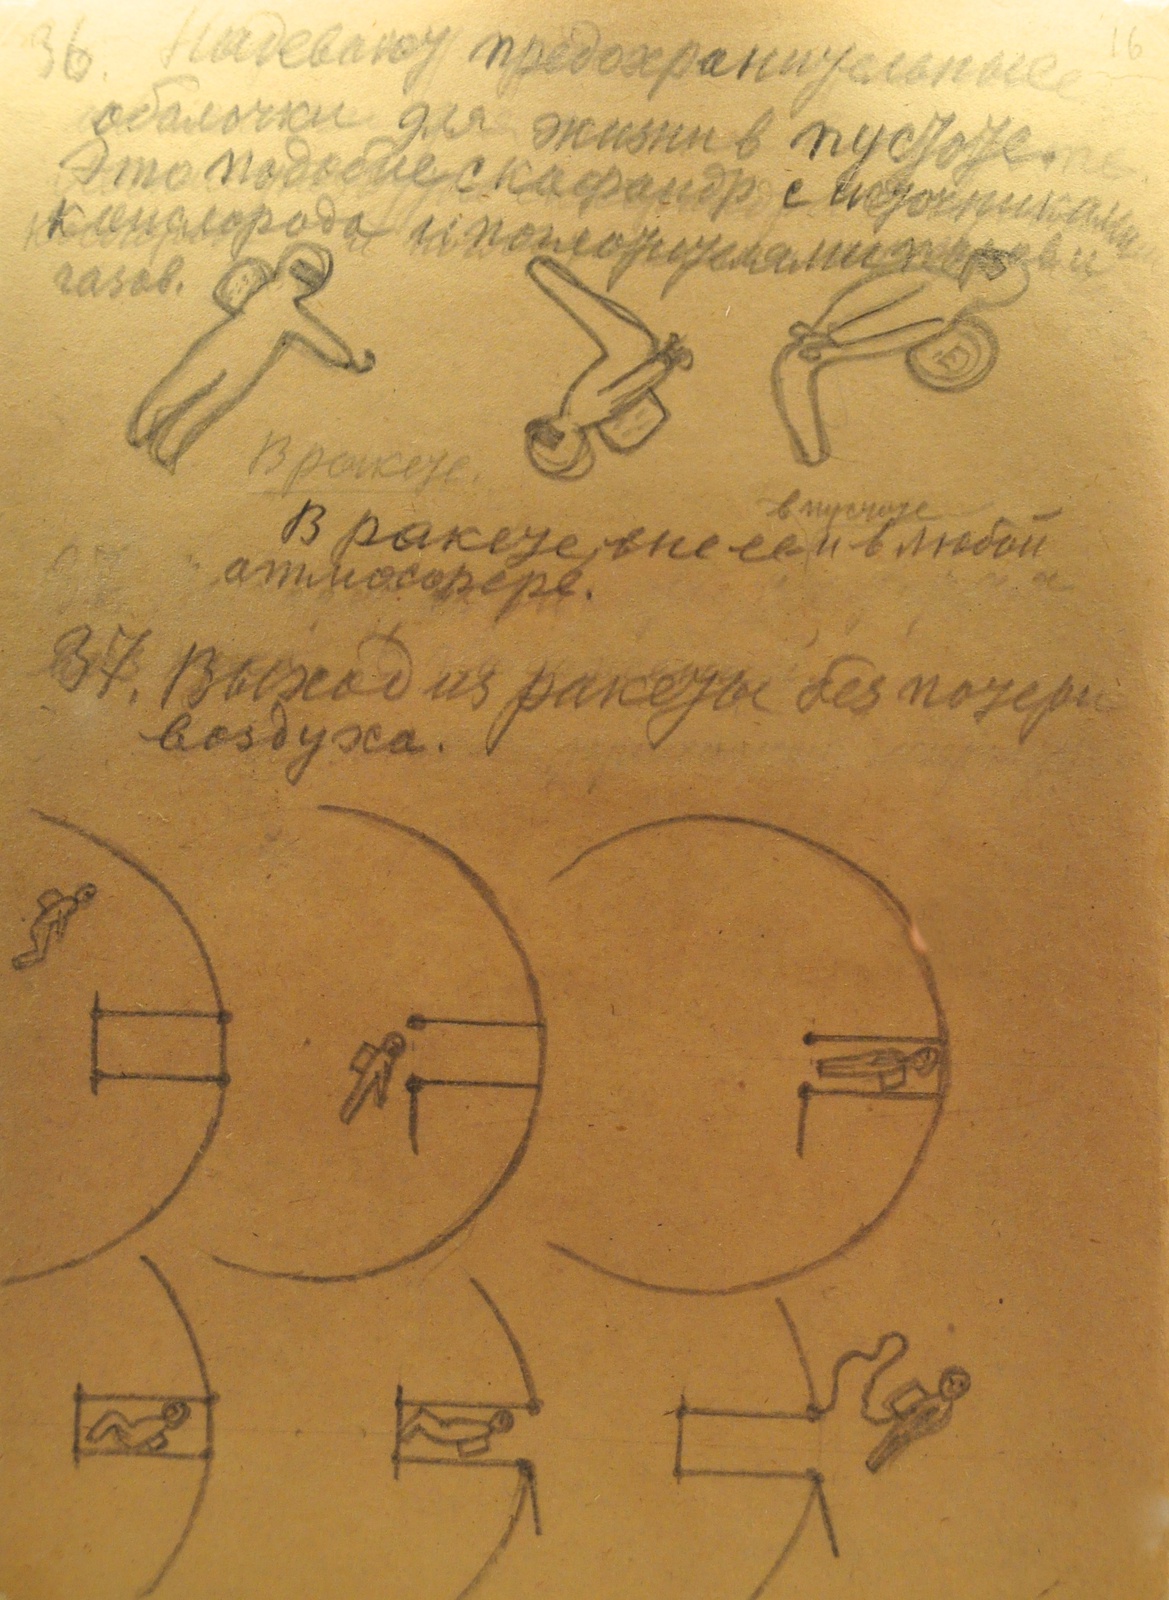 16
36. Надевают предохранительные
оболочки для жизни в пустоте.
Это подобие скафандр с источниками
кислорода и поглотителями
газов.
В ракете.
в пустоте
В ракете, вне ее и в любой
атмосфере.
37. Выход из ракеты без потери
воздуха.